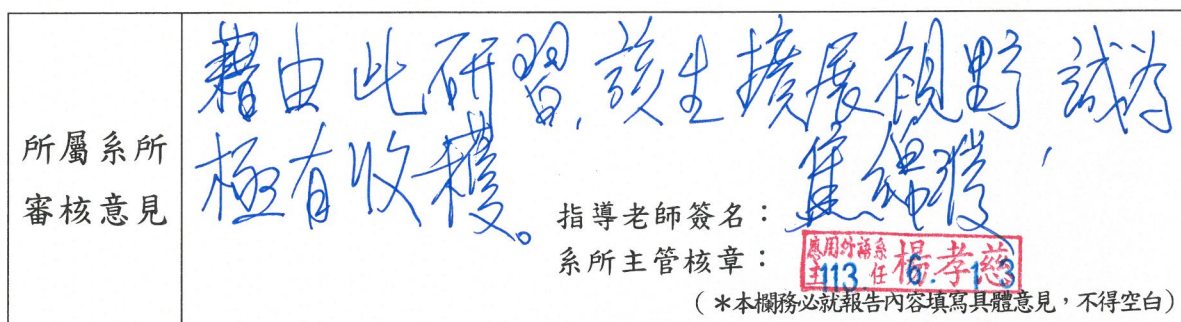 所屬系所
審核意見
藉由此研習,該生擴展視野,誠為
極有收穫。
指導老師簽名:
系所主管核章:
應用外語系
主任
楊孝慈
113. 6. 13
(*本欄務必就報告內容填寫具體意見,不得空白)